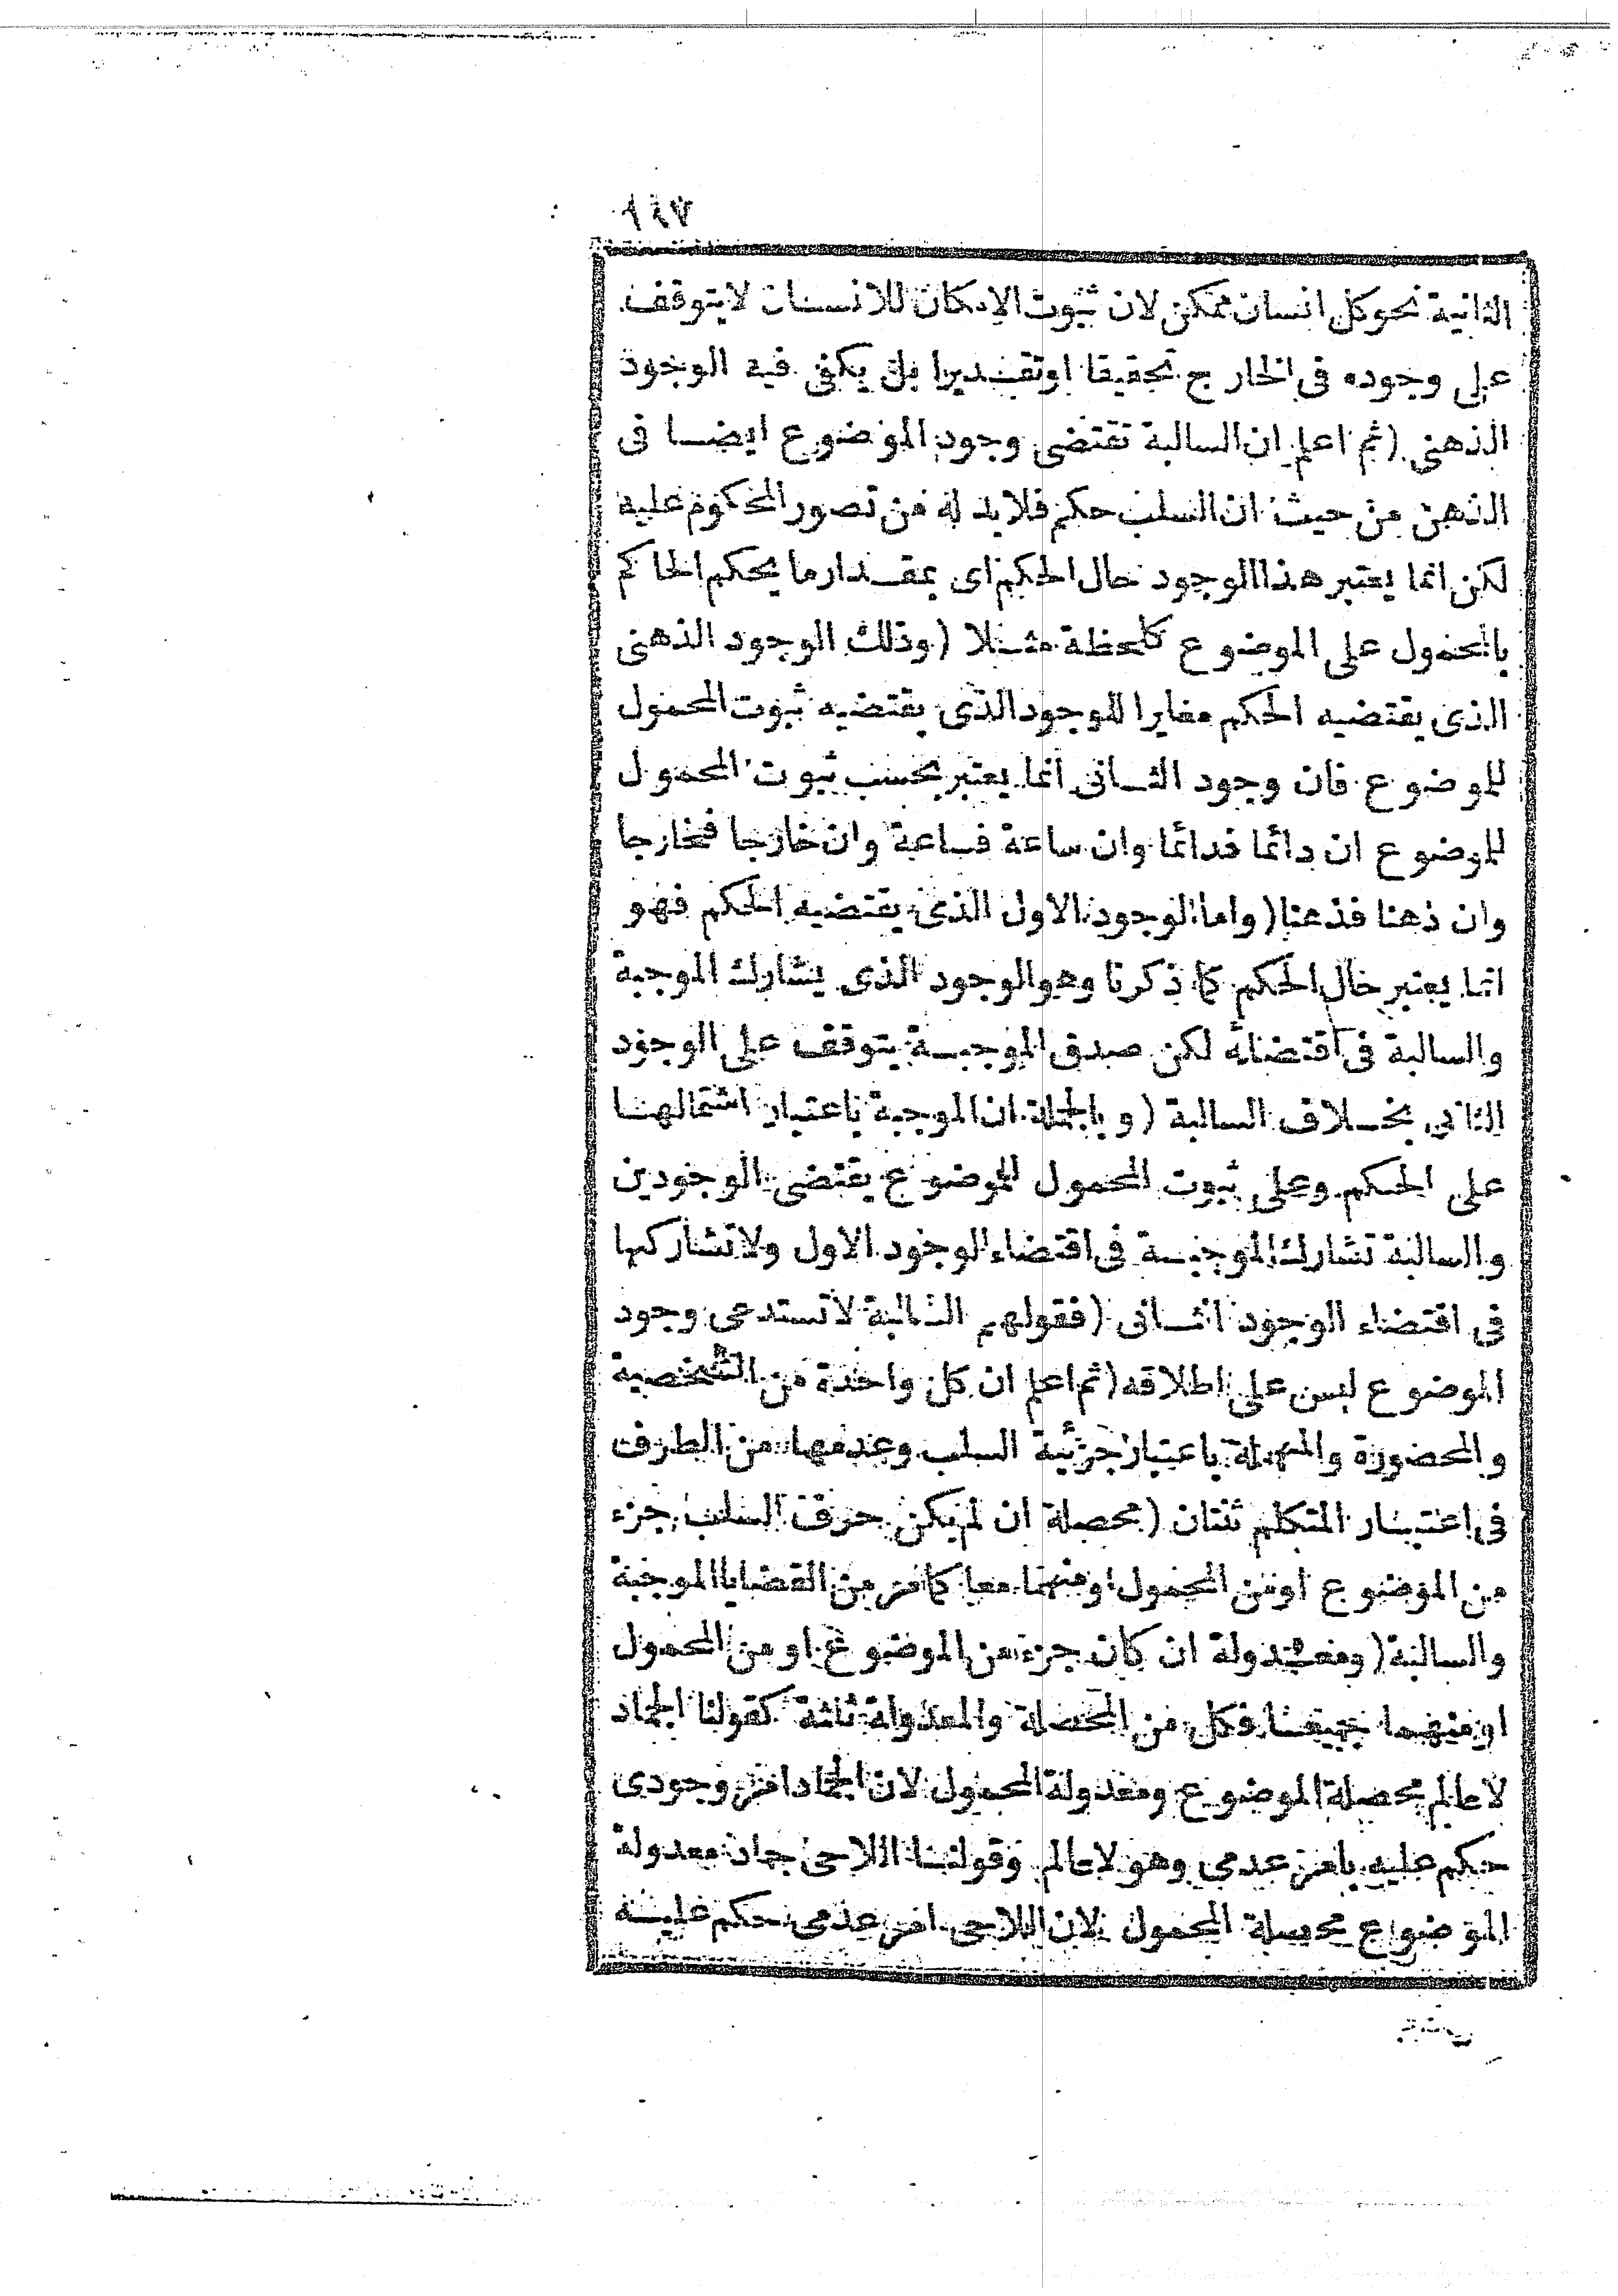 ١٤٧
الثانية نحو كل انسان ممكن لان ثبوت الامكان للانسان لا يتوقف
على وجوده فى الخارج تحقيقا او تقديرا بل يكفى فيه الوجود
الذهنى (ثم اعلم ان السالبة تقتضى وجود الموضوع ايضا فى
الذهن من حيث ان السلب حكم فلا بد له من تصور المحكوم عليه
لكن انما يعتبر هذا الوجود حال الحكم اى بمقدار ما يحكم الحاكم
بالمحمول على الموضوع كلحظة مثلا (وذلك الوجود الذهنى
الذى يقتضيه الحكم مغايرا للوجود الذى يقتضيه ثبوت المحمول
للموضوع فان وجود الثانى انما يعتبر بحسب ثبوت المحمول
للموضوع ان دائما فدائما وان ساعة فساعة وان خارجا فخارجا
وان ذهنا فذهنا (واما الوجود الاول الذى يقتضيه الحكم فهو
انما يعتبر حال الحكم كما ذكرنا وهو الوجود الذى يشارك الموجبة
والسالبة فى اقتضائه لكن صدق الموجبة يتوقف على الوجود
الثانى بخلاف السالبة (وبالجملة ان الموجبة باعتبار اشتمالها
على الحكم وعلى ثبوت المحمول للموضوع يقتضى الوجودين
والسالبة تشارك الموجبة فى اقتضاء الوجود الاول ولا تشاركها
فى اقتضاء الوجود الثانى (فقولهم السالبة لا تستدعى وجود
الموضوع ليس على اطلاقه (ثم اعلم ان كل واحدة من الشخصية
والمحصورة والمهملة باعتبار جزئية السلب وعدمها من الطرف
فى اعتبار المتكلم ثنتان (محصلة ان لم يكن حرف السلب جزء
من الموضوع او من المحمول او منهما معا كما مر من القضايا الموجبة
والسالبة (ومعدولة ان كان جزء من الموضوع او من المحمول
او منهما جميعا فكل من المحصلة والمعدولة ثلثة كقولنا الجماد
لا عالم محصلة الموضوع ومعدولة المحمول لان الجماد امر وجودى
حكم عليه بامر عدمى وهو لا عالم وقولنا اللاحى جماد معدولة
الموضوع محصلة المحمول لان اللاحى امر عدمى حكم عليه